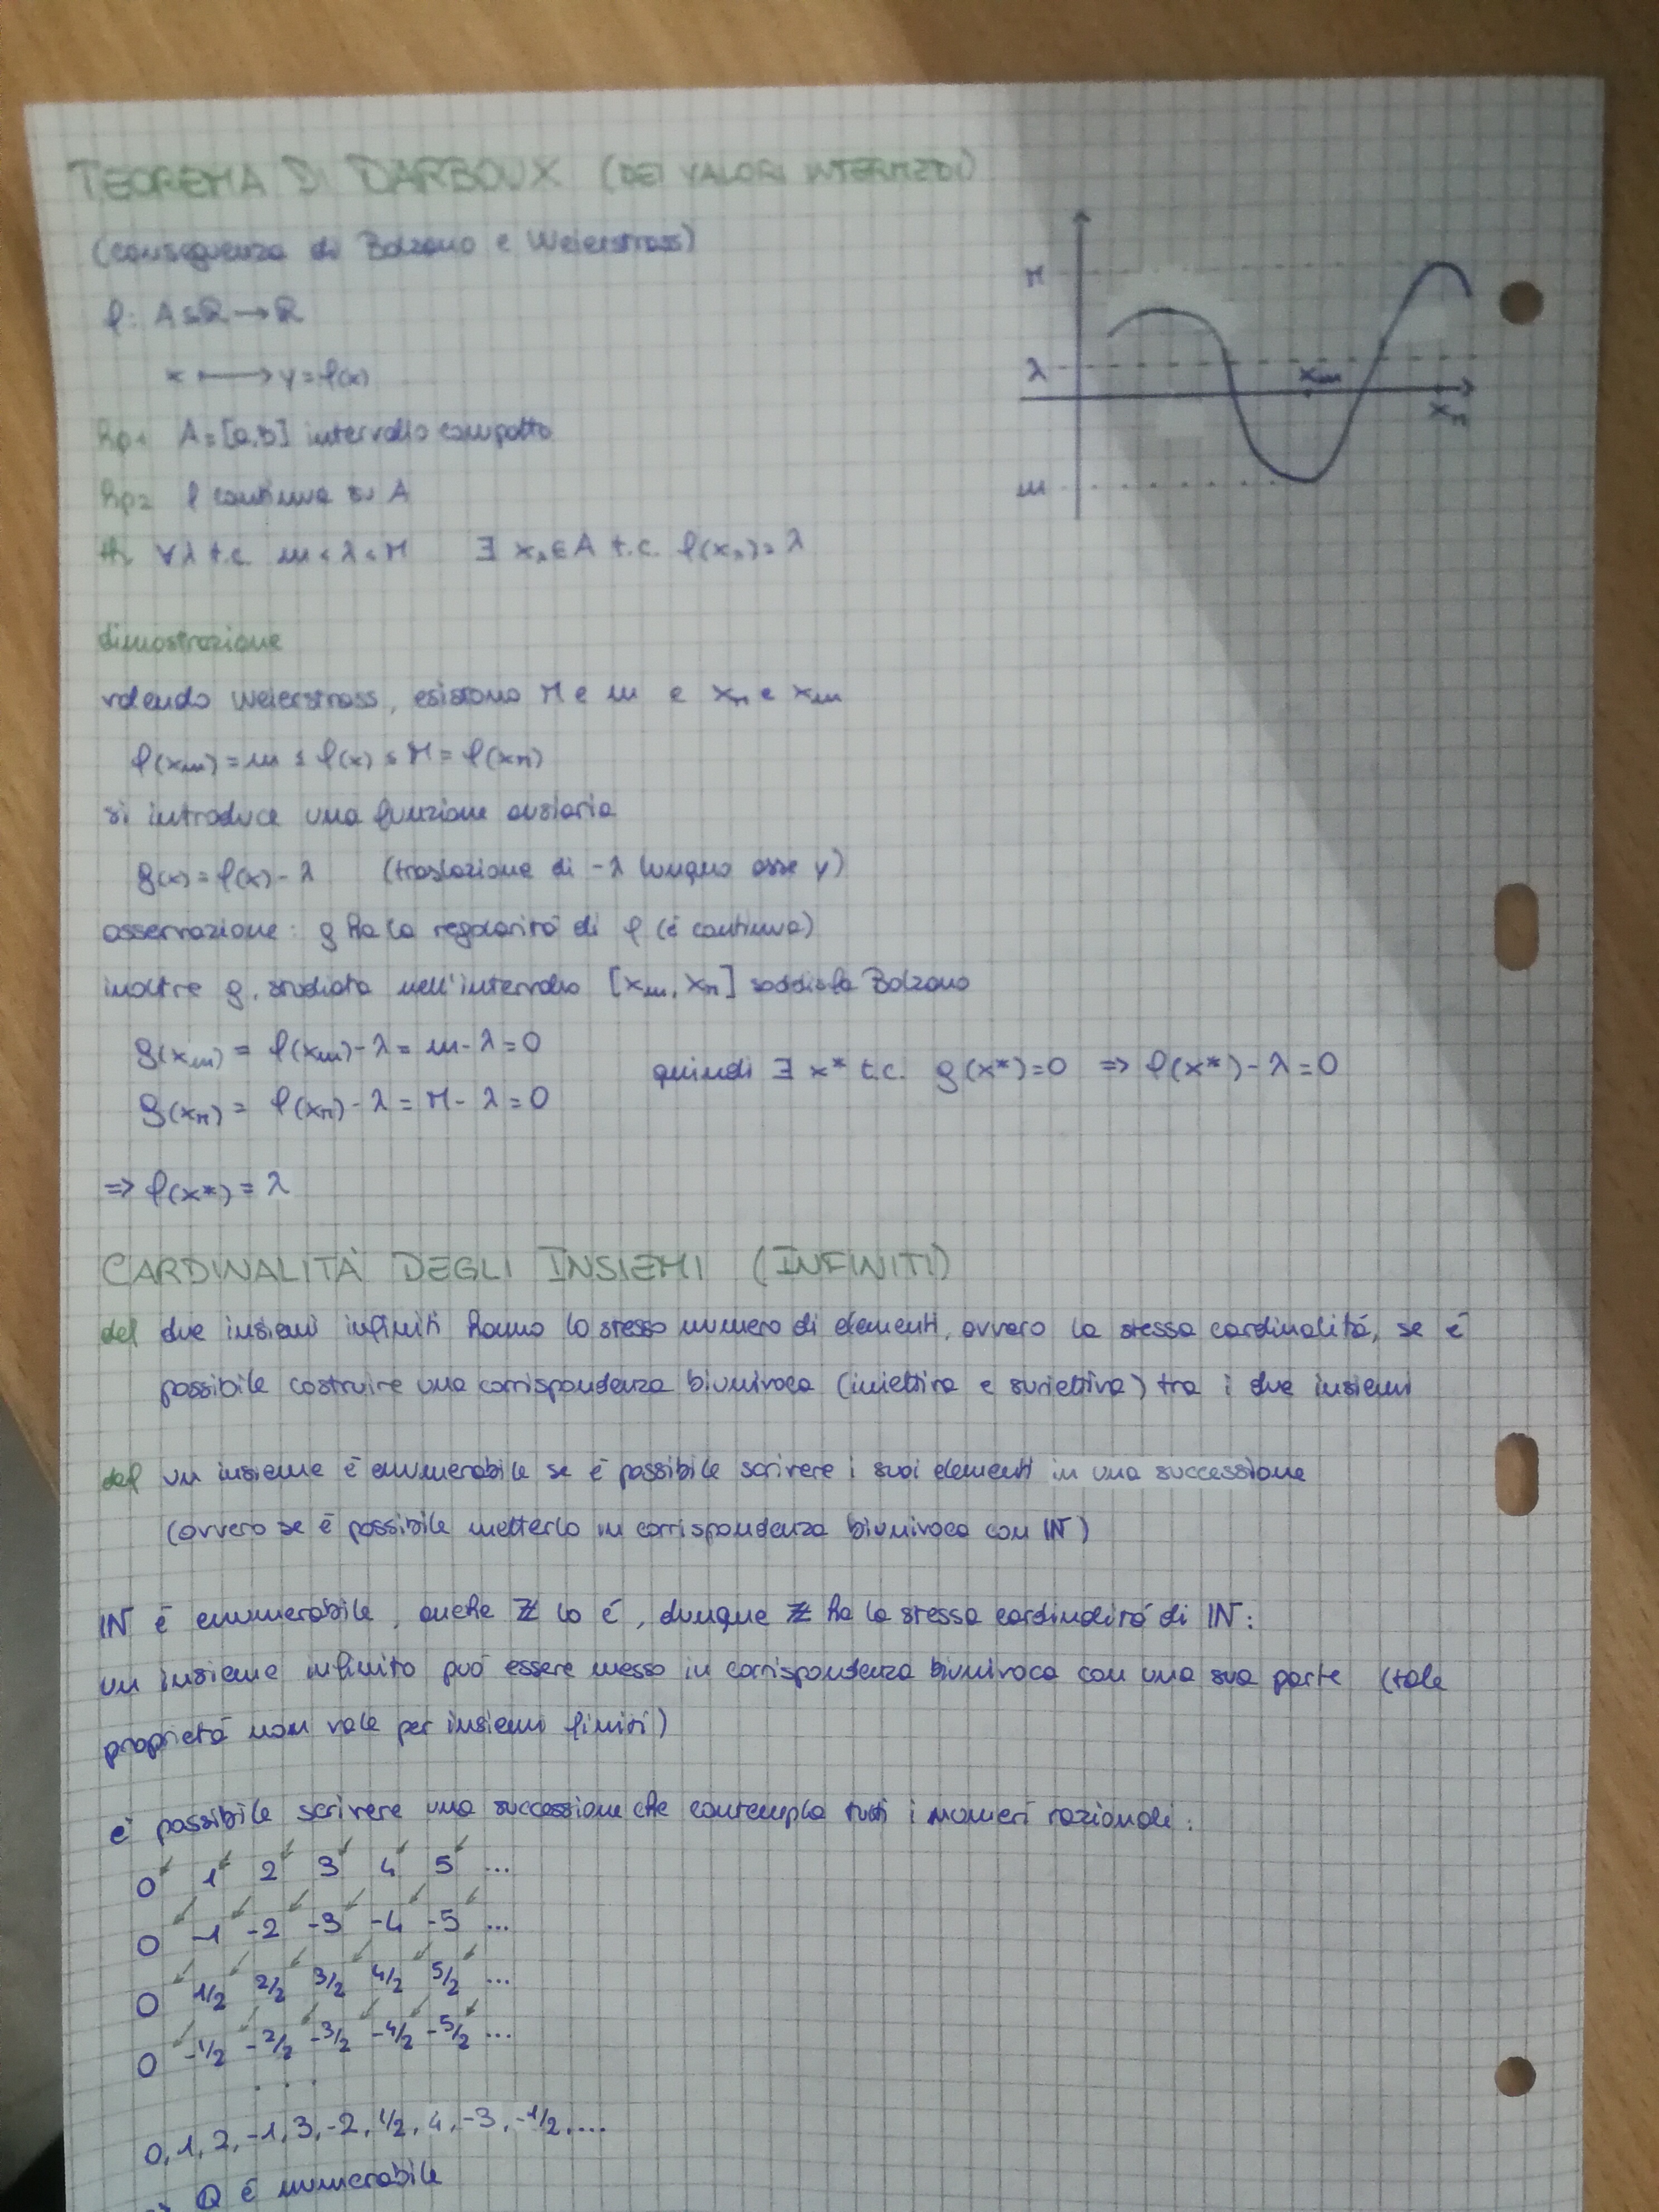 TEOREMA DI DARBOUX (DEI VALORI INTERMEDI)
(conseguenza di Bolzano e Weierstrass)
f: A⊆ℝ→ℝ
x ⟼ y=f(x)
hp1 A=[a,b] intervallo compatto
hp2 f continua su A
th ∀λ t.c. m<λ<M ∃ xλ∈A t.c. f(xλ)=λ
M
λ
m
xm
xM
dimostrazione
valendo Weierstrass, esistono M e m e xM e xm
f(xm)=m≤f(x)≤M=f(xM)
si introduce una funzione ausiaria
g(x)=f(x)-λ (traslazione di -λ lungo asse y)
osservazione: g ha la regolarità di f (è continua)
inoltre g, studiata nell'intervallo [xm, xM] soddisfa Bolzano
g(xm) = f(xm)-λ = m-λ=0
g(xM) = f(xM)-λ = M-λ=0
quindi ∃ x* t.c. g(x*)=0 ⇒ f(x*)-λ=0
⇒ f(x*) = λ
CARDINALITÀ DEGLI INSIEMI (INFINITI)
def due insiemi infiniti hanno lo stesso numero di elementi, ovvero la stessa cardinalità, se è
possibile costruire una corrispondenza biunivoca (iniettiva e suriettiva) tra i due insiemi
def un insieme è enumerabile se è possibile scrivere i suoi elementi in una successione
(ovvero se è possibile metterlo in corrispondenza biunivoca con ℕ)
ℕ è enumerabile, anche ℤ lo è, dunque ℤ ha la stessa cardinalità di ℕ:
un insieme infinito può essere messo in corrispondenza biunivoca con una sua parte (tale
proprietà non vale per insiemi finiti)
è possibile scrivere una successione che contempla tutti i numeri razionali:
0 1 2 3 4 5 ...
0 -1 -2 -3 -4 -5 ...
0 1/2 2/2 3/2 4/2 5/2 ...
0 -1/2 -2/2 -3/2 -4/2 -5/2 ...
. . .
0, 1, 2, -1, 3, -2, 1/2, 4, -3, -1/2, ....
⇒ ℚ è numerabile